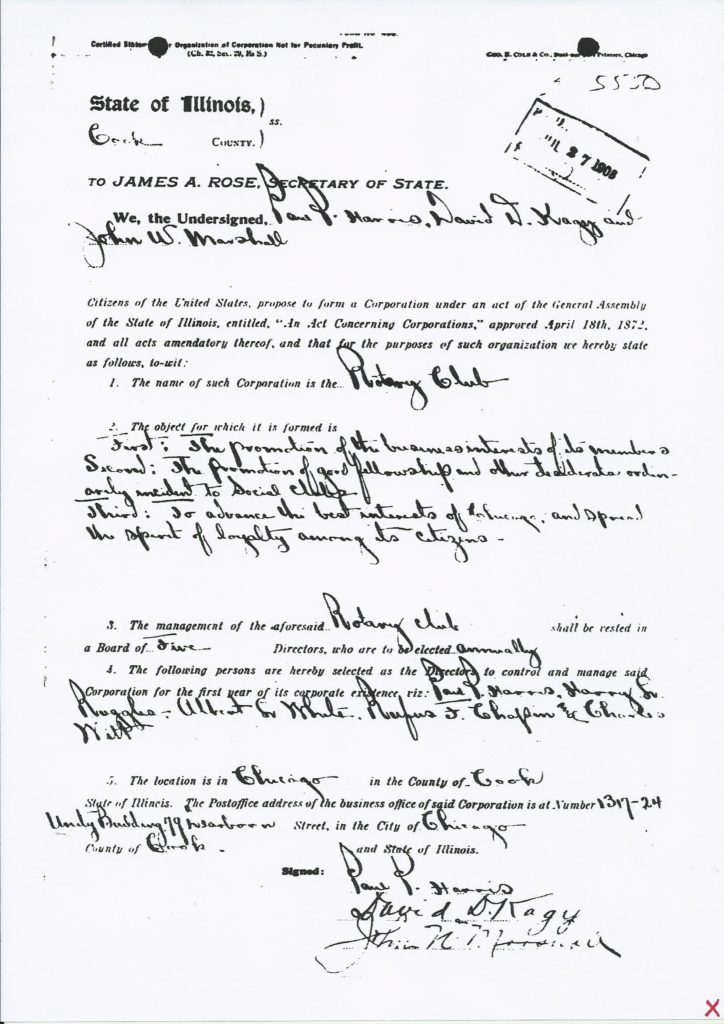 Certified State r Organization of Corporation Not for Pecuniary Profit.
(Ch. 32, Sec. 29, R. S.)
GEO. E. COLE & Co., Printers, Chicago
5550
State of Illinois, )
ss.
Cook COUNTY. )
27 1908
TO JAMES A. ROSE, SECRETARY OF STATE.
We, the Undersigned, Paul P. Harris, David D. Kagy and
John W. Marshall
Citizens of the United States, propose to form a Corporation under an act of the General Assembly
of the State of Illinois, entitled, "An Act Concerning Corporations," approved April 18th, 1872,
and all acts amendatory thereof, and that for the purposes of such organization we hereby state
as follows, to-wit:
1. The name of such Corporation is the Rotary Club
2. The object for which it is formed is
First: The promotion of the business interests of its members
Second: The promotion of good fellowship and other desiderata ordin-
arily incident to Social Clubs
Third: To advance the best interests of Chicago, and spread
the spirit of loyalty among its citizens -
3. The management of the aforesaid Rotary club shall be vested in
a Board of Five Directors, who are to be elected annually
4. The following persons are hereby selected as the Directors to control and manage said
Corporation for the first year of its corporate existence, viz: Paul P. Harris, Harry L.
Ruggles - Albert L. White, Rufus F. Chapin & Charles
Witt
5. The location is in Chicago in the County of Cook
State of Illinois. The Postoffice address of the business office of said Corporation is at Number 1317-24
Unity Building 79 Dearborn Street, in the City of Chicago
County of Cook. and State of Illinois.
Signed: Paul P. Harris
David D. Kagy
John W. Marshall
X